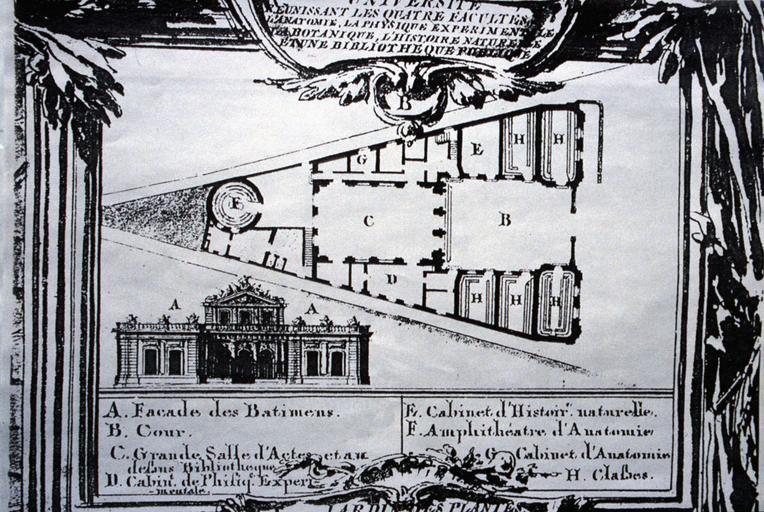 UNIVERSITÉ
REUNISSANT LES QUATRE FACULTES,
L'ANATOMIE, LA PHYSIQUE EXPERIMENTALE
LA BOTANIQUE, L'HISTOIRE NATURELLE
ET UNE BIBLIOTHEQUE PUBLIQUE
B
G E H H
F C B
D H H H
A A
A. Facade des Batimens.
B. Cour.
C. Grande Salle d'Actes et au
dessus Bibliotheque
D. Cabin. de Phisiq. Experi
mentale.
E. Cabinet d'Histoir. naturelle.
F. Amphithéatre d'Anatomie
G. Cabinet d'Anatomie
H. Claßes.
JARDIN DES PLANTES